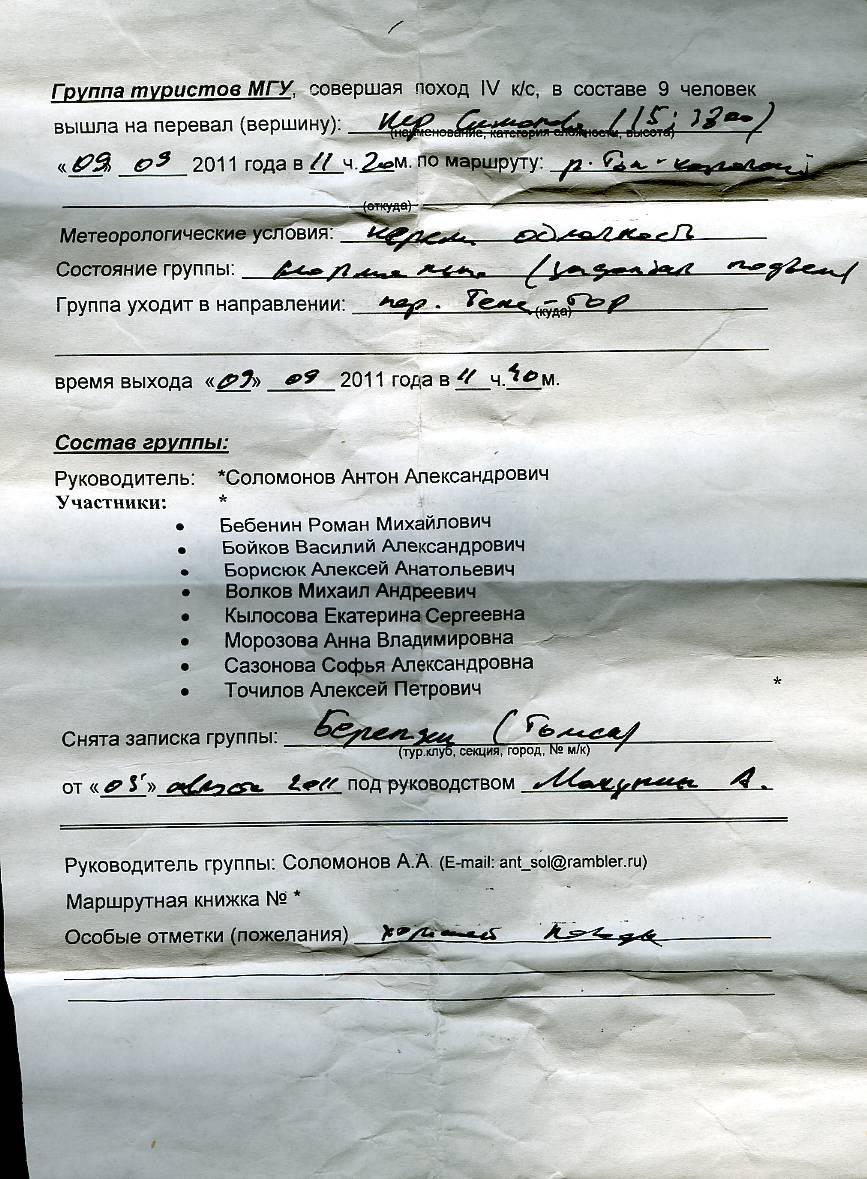 Группа туристов МГУ, совершая поход IV к/с, в составе 9 человек
вышла на перевал (вершину): пер
(наименование, категория сложности, высота)
«09» 09 2011 года в 11 ч. 20 м. по маршруту: р.
(откуда)
Метеорологические условия: перем. облачность
Состояние группы: подъем)
Группа уходит в направлении: пер.
(куда)
время выхода «09» 09 2011 года в 11 ч. 40 м.
Состав группы:
Руководитель: *Соломонов Антон Александрович
Участники: *
• Бебенин Роман Михайлович
• Бойков Василий Александрович
• Борисюк Алексей Анатольевич
• Волков Михаил Андреевич
• Кылосова Екатерина Сергеевна
• Морозова Анна Владимировна
• Сазонова Софья Александровна
• Точилов Алексей Петрович
*
Снята записка группы: (Томск)
(тур.клуб, секция, город, № м/к)
от «05» августа 2011 под руководством А.
Руководитель группы: Соломонов А.А. (E-mail: ant_sol@rambler.ru)
Маршрутная книжка № *
Особые отметки (пожелания) хорошей погоды